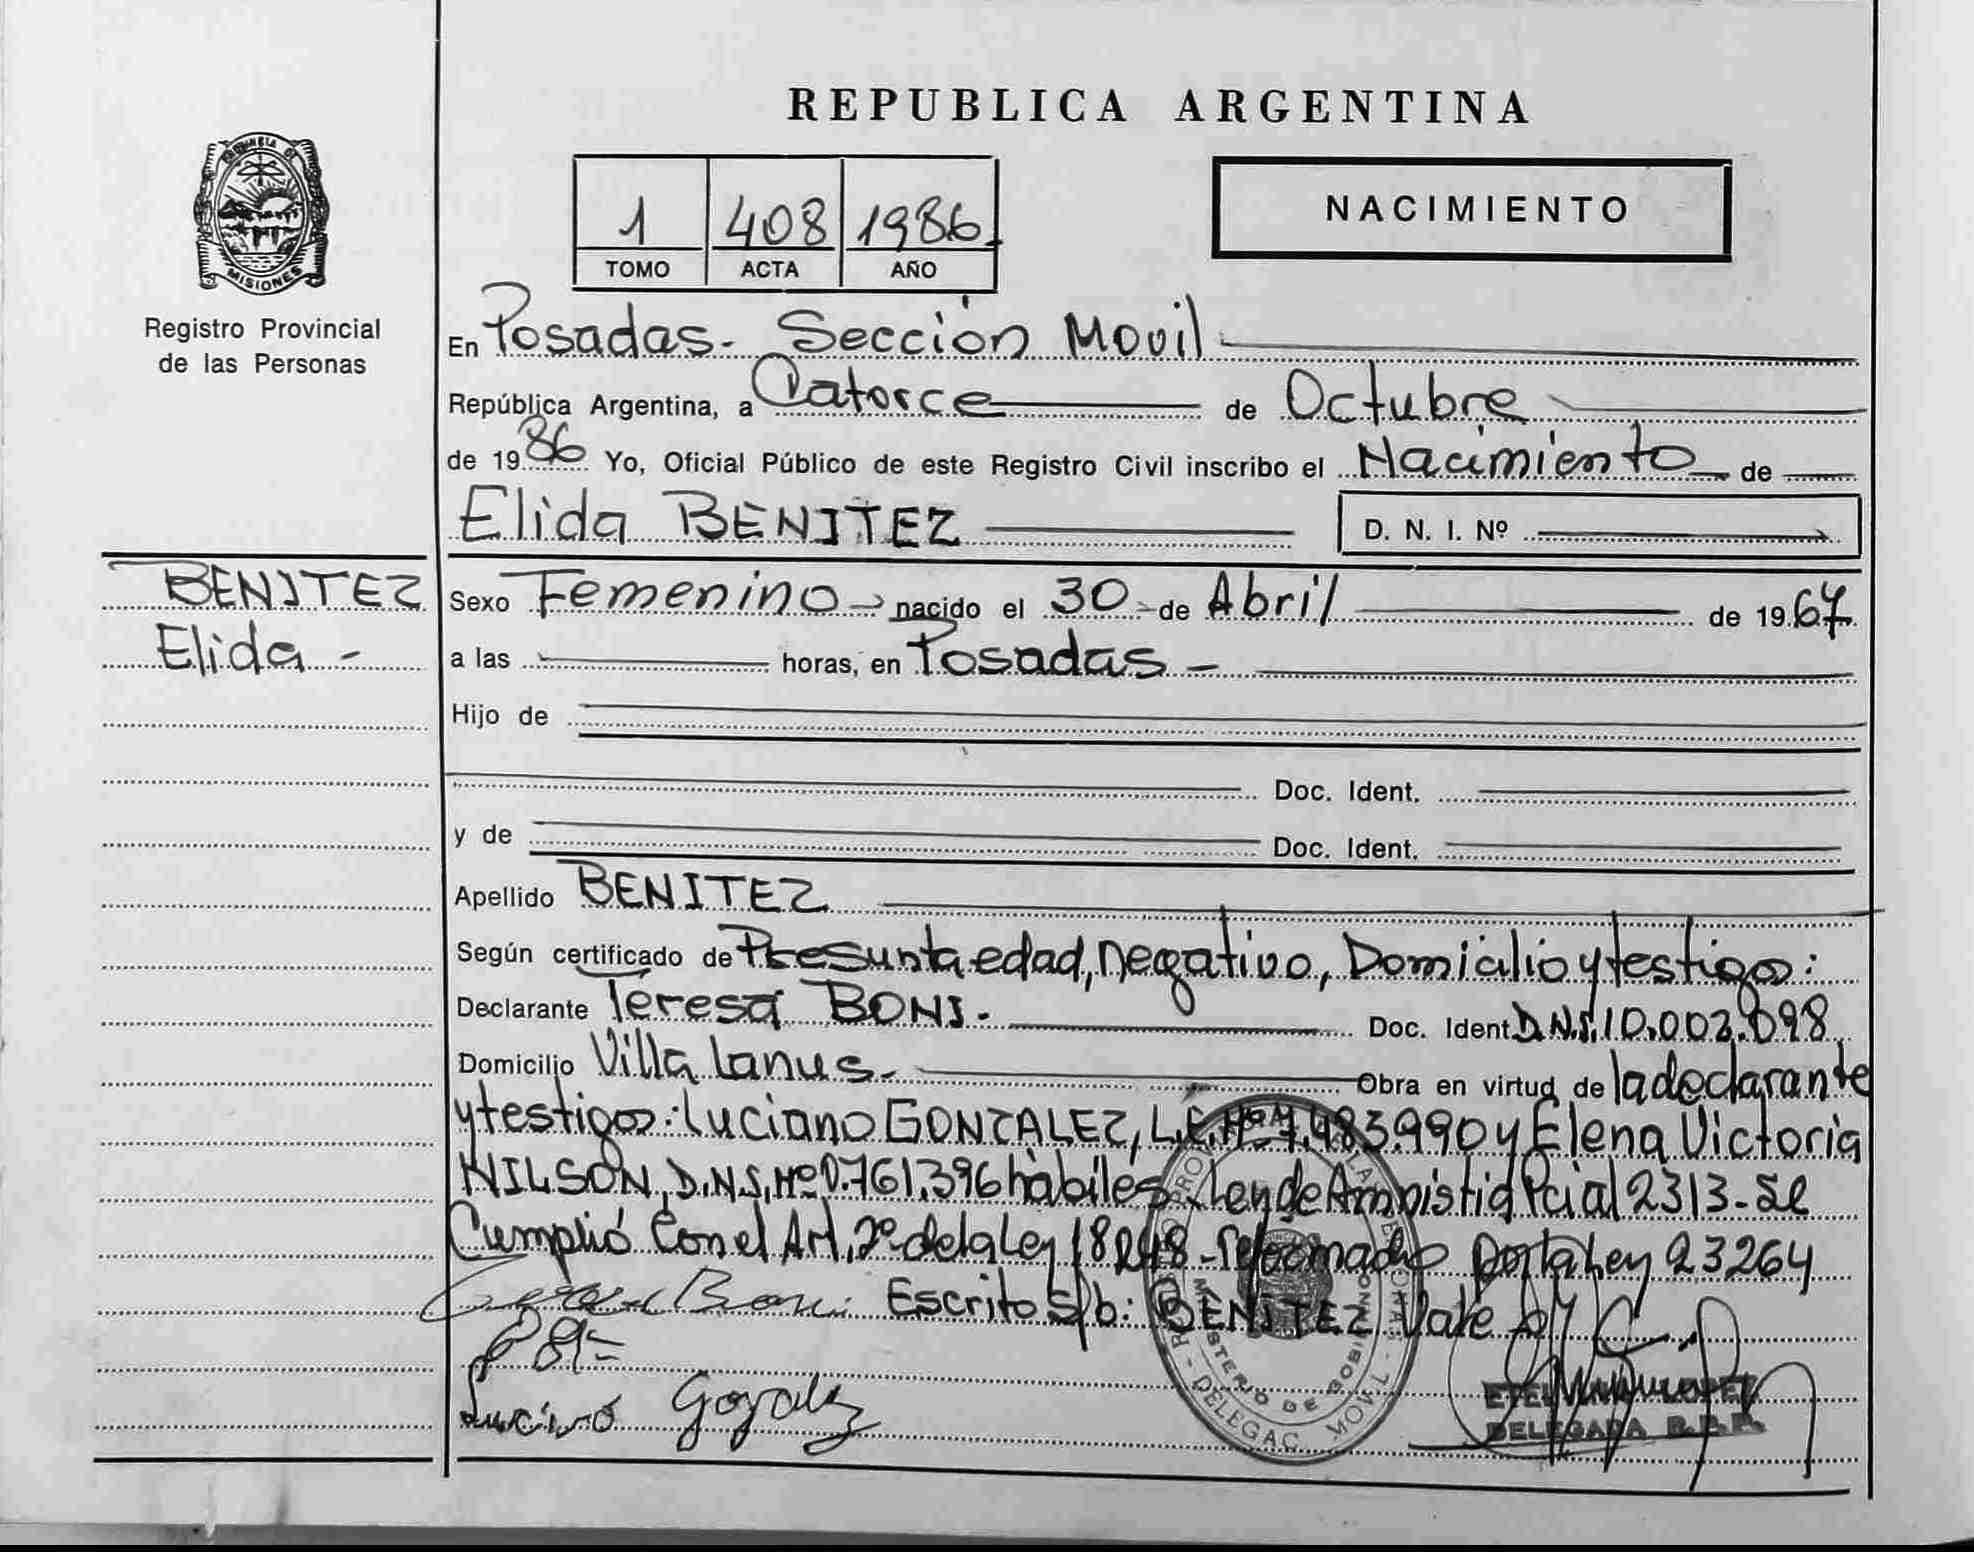 REPUBLICA ARGENTINA
PROVINCIA DE
MISIONES
Registro Provincial
de las Personas
1 408 1986
TOMO ACTA AÑO
NACIMIENTO
En Posadas- Sección Movil
República Argentina, a Catorce de Octubre
de 1986 Yo, Oficial Público de este Registro Civil inscribo el Nacimiento de
Elida BENITEZ D. N. I. Nº
BENITEZ
Elida -
Sexo Femenino nacido el 30 de Abril de 1967
a las horas, en Posadas -
Hijo de
Doc. Ident.
y de Doc. Ident.
Apellido BENITEZ
Según certificado de Presunta edad, negativo, Domicilio y testigos:
Declarante Teresa BONI. Doc. Ident D.N.I. 10.002.098
Domicilio Villa Lanus. Obra en virtud de la declarante
y testigos: Luciano GONZALEZ, L.E. Nº 7.483.990 y Elena Victoria
NILSON, D.N.I, Nº 0.761.396 hábiles - Ley de Amnistia Pcial 2313 - Se
Cumplió con el Art. 2º de la Ley 18248 - Reformado por la Ley 23264
Teresa Boni Escrito s/b: BENITEZ Vale
Luciano Gonzalez
DELEGAC. MOVIL
MINISTERIO DE GOBIERNO
DELEGADA R.P.P.